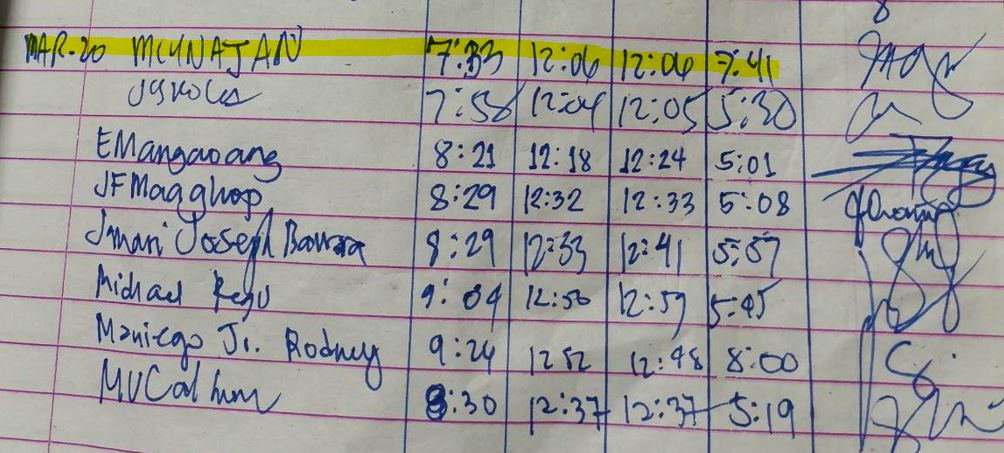 MAR. 20 MCYNATAN 7:33 12:06 12:06 7:41
7:58 12:04 12:05 5:30
EMangaoang 8:21 12:18 12:24 5:01
JFMagghop 8:29 12:32 12:33 5:08
Jmari Joseph 8:29 12:33 12:41 5:57
Michael 9:04 12:50 12:59 5:45
Maniego Jr. Rodney 9:24 1252 12:48 8:00
8:30 12:37 12:37 5:19